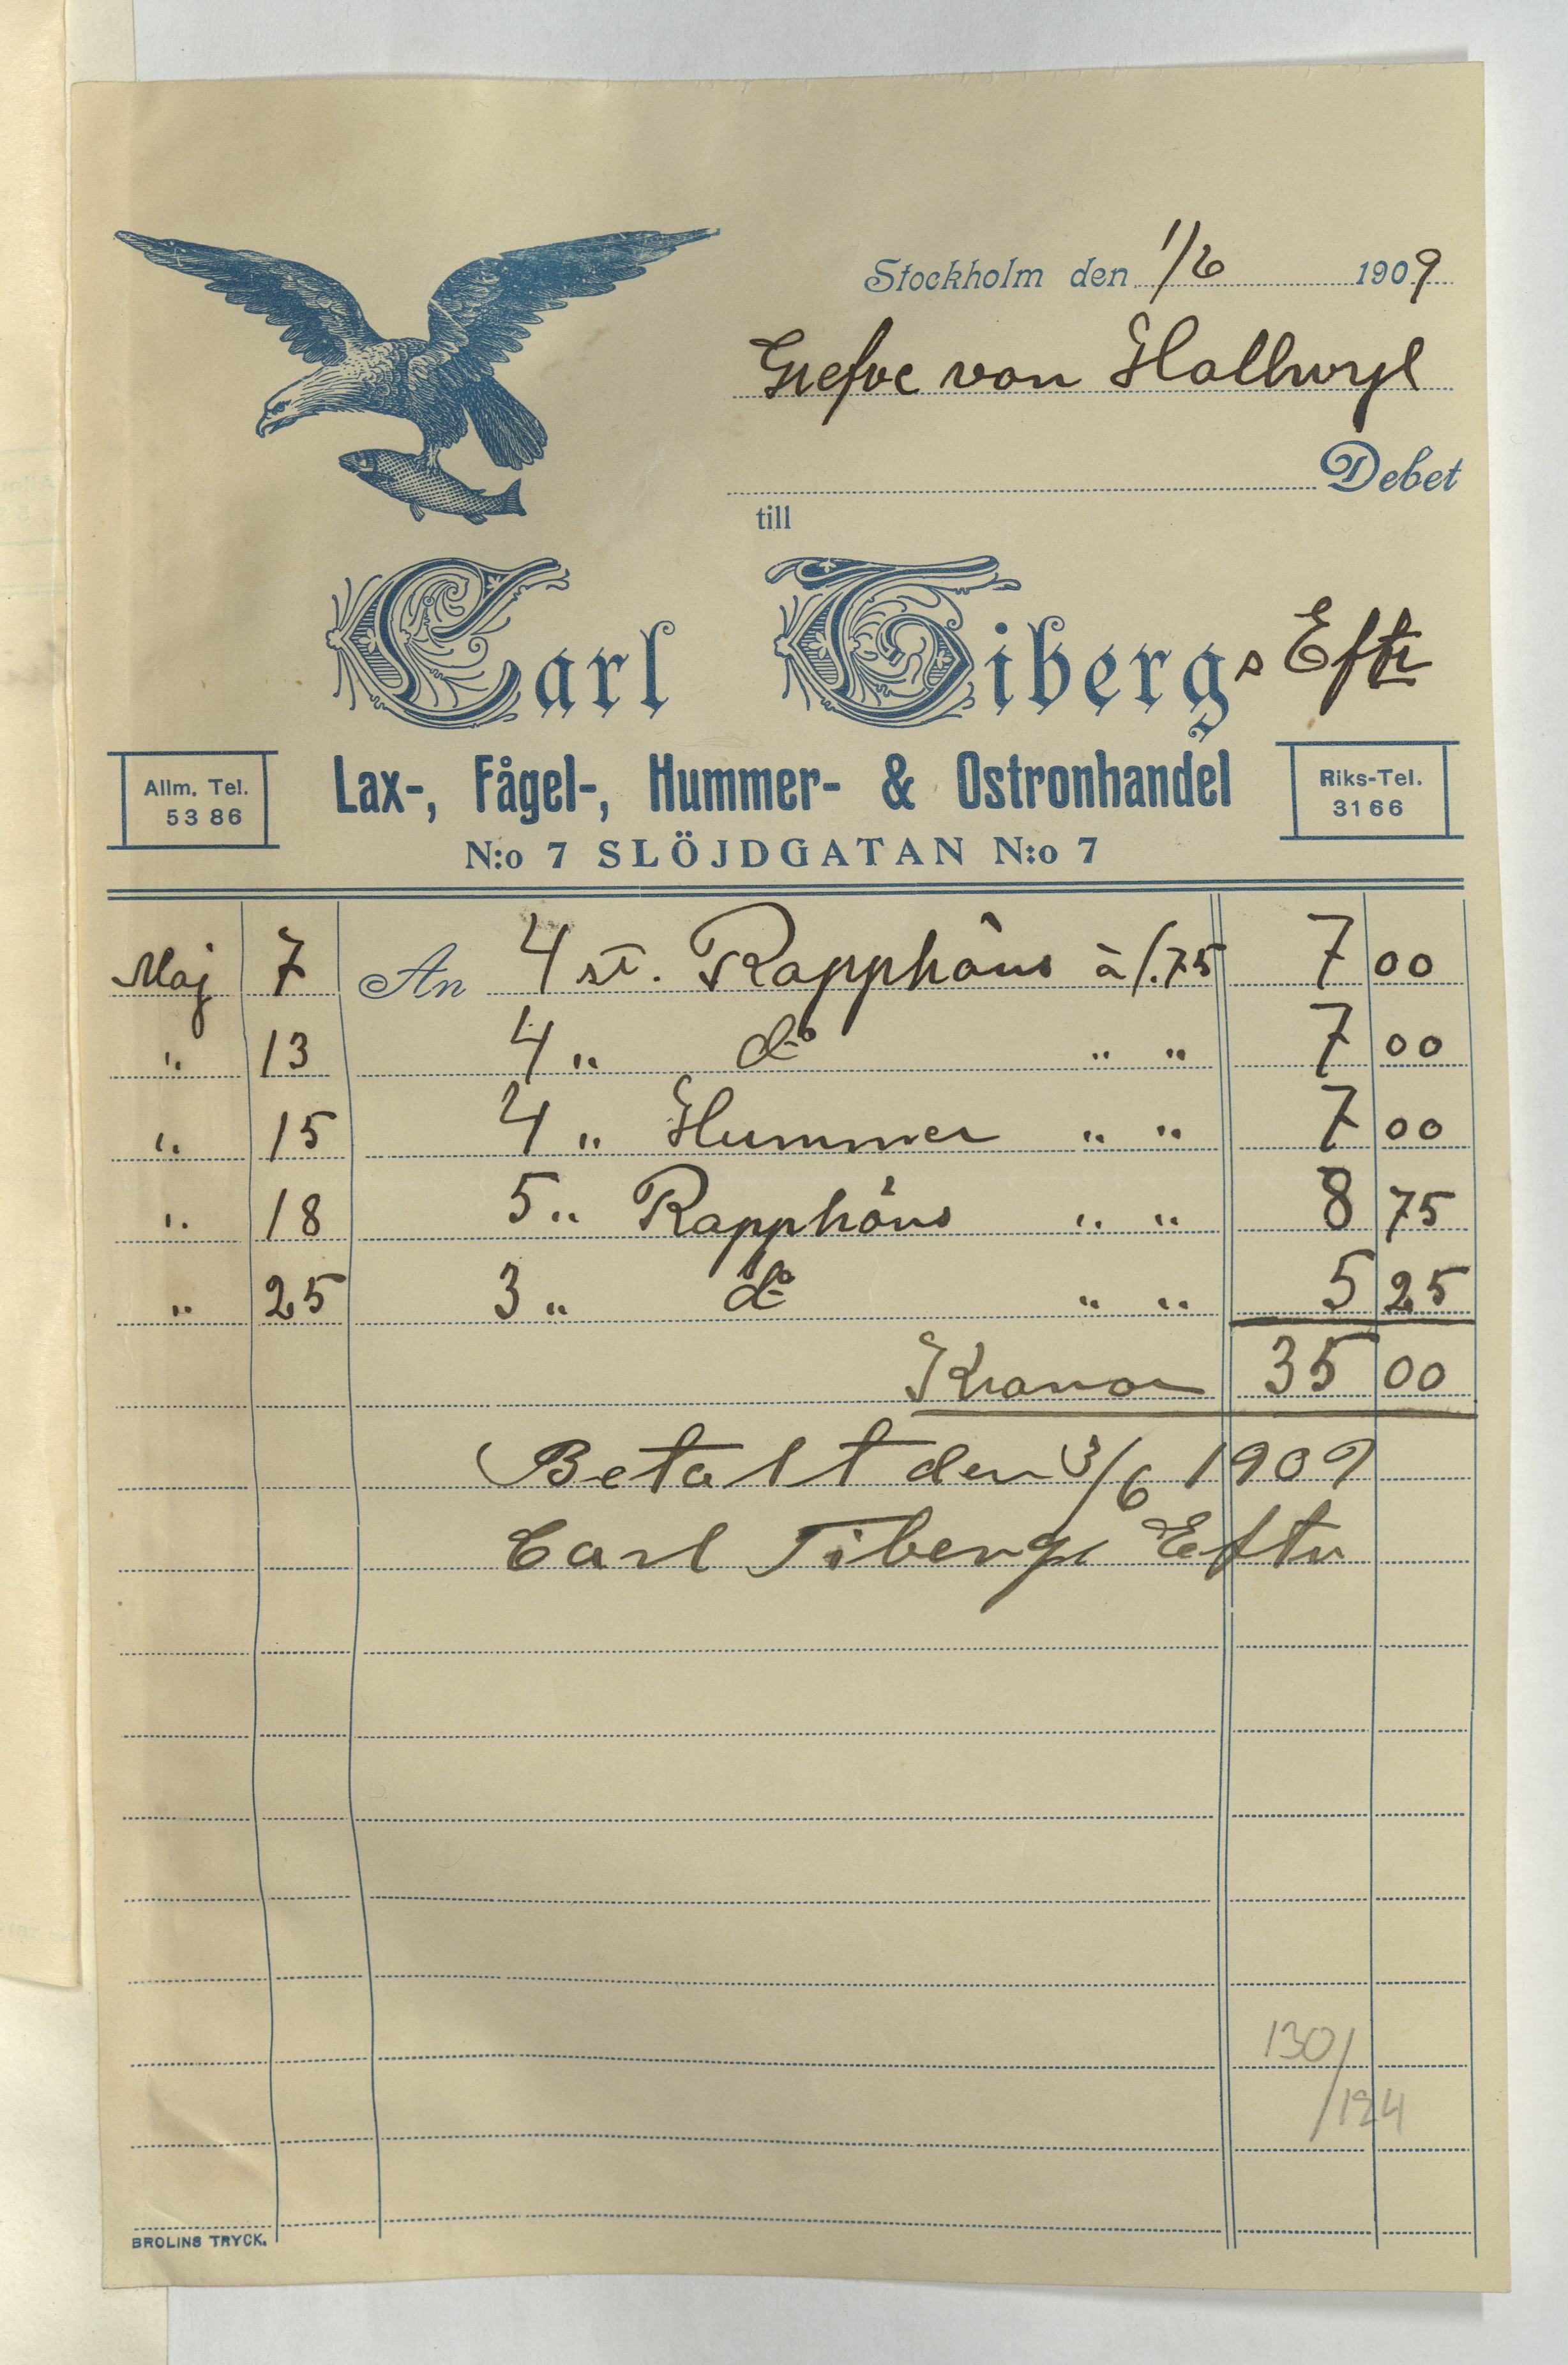 Stockholm den 1/6 1909
Grefve von Hallwyl
Debet
till
Carl Tibergs Eftr
Allm. Tel.
53 86
Lax-, Fågel-, Hummer- & Ostronhandel
Riks-Tel.
3166
N:o 7 SLÖJDGATAN N:o 7
Maj 7 An 4 st. Rapphöns à 1.75 7 00
" 13 4 " do " " 7 00
" 15 4 " Hummer " " 7 00
" 18 5 " Rapphöns " " 8 75
" 25 3 " do " " 5 25
Kronor 35 00
Betalt den 3/6 1909
Carl Tibergs Eftr
130/
/124
BROLINS TRYCK.